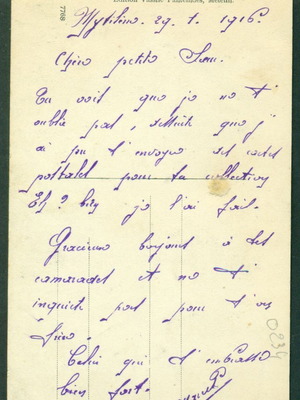 7788
Mytilène. 29. 1. 1916.
Chère petite
Tu voit que je ne t'
oublie pas, que j'
ai pu t'envoyer des cartes
postales pour ta collection
Eh ? bien je l'ai fait.
Gracieux bonjour à tes
camarades et ne t'
inquiete pas pour t'on
frère.
Celui qui t'embrasse
bien fort.
0234